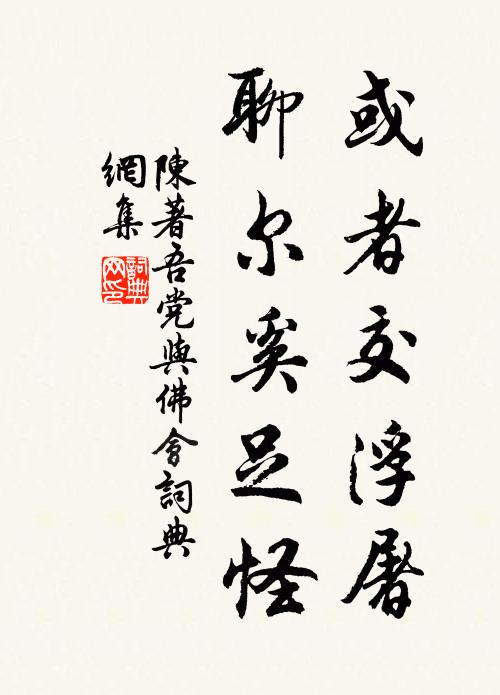 或者交浮屠
聊尔奚足怪
陳著吾党與佛會詞典
網集
詞典網印